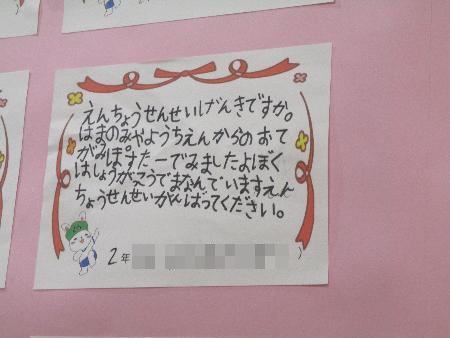 えんちょうせんせいげんきですか。
はまのみやようちえんからのおて
がみぽすたーでみましたよぼく
はしょうがっこうでまなんでいますえん
ちょうせんせいがんばってください。
2年